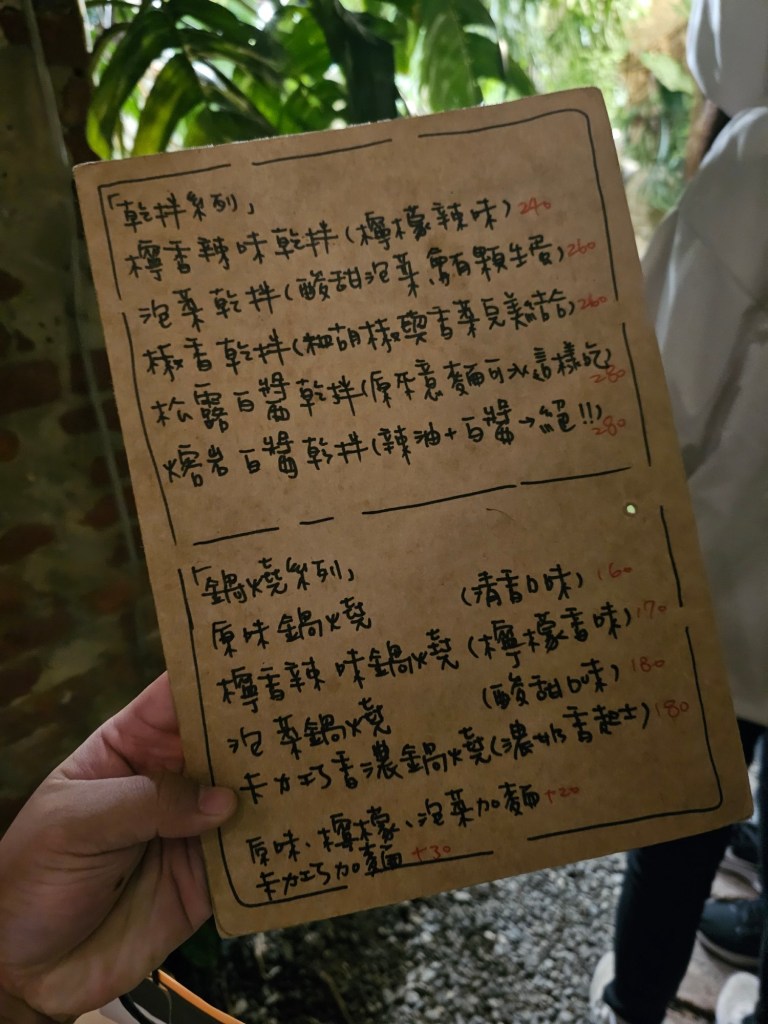 「乾拌系列」
檸香辣味乾拌(檸檬辣味) 240
泡菜乾拌(酸甜泡菜,會有顆生蛋) 260
椒香乾拌(粗胡椒與香菜完美結合) 260
松露白醬乾拌(原來意麵可以這樣吃) 280
熔岩白醬乾拌(辣油+白醬→絕!!) 280
「鍋燒系列」
原味鍋燒 (清香口味) 160
檸香辣味鍋燒(檸檬香味) 170
泡菜鍋燒 (酸甜口味) 180
卡力巧香濃鍋燒(濃奶香起士) 180
原味、檸檬、泡菜加麵 +20
卡力巧加麵 +30